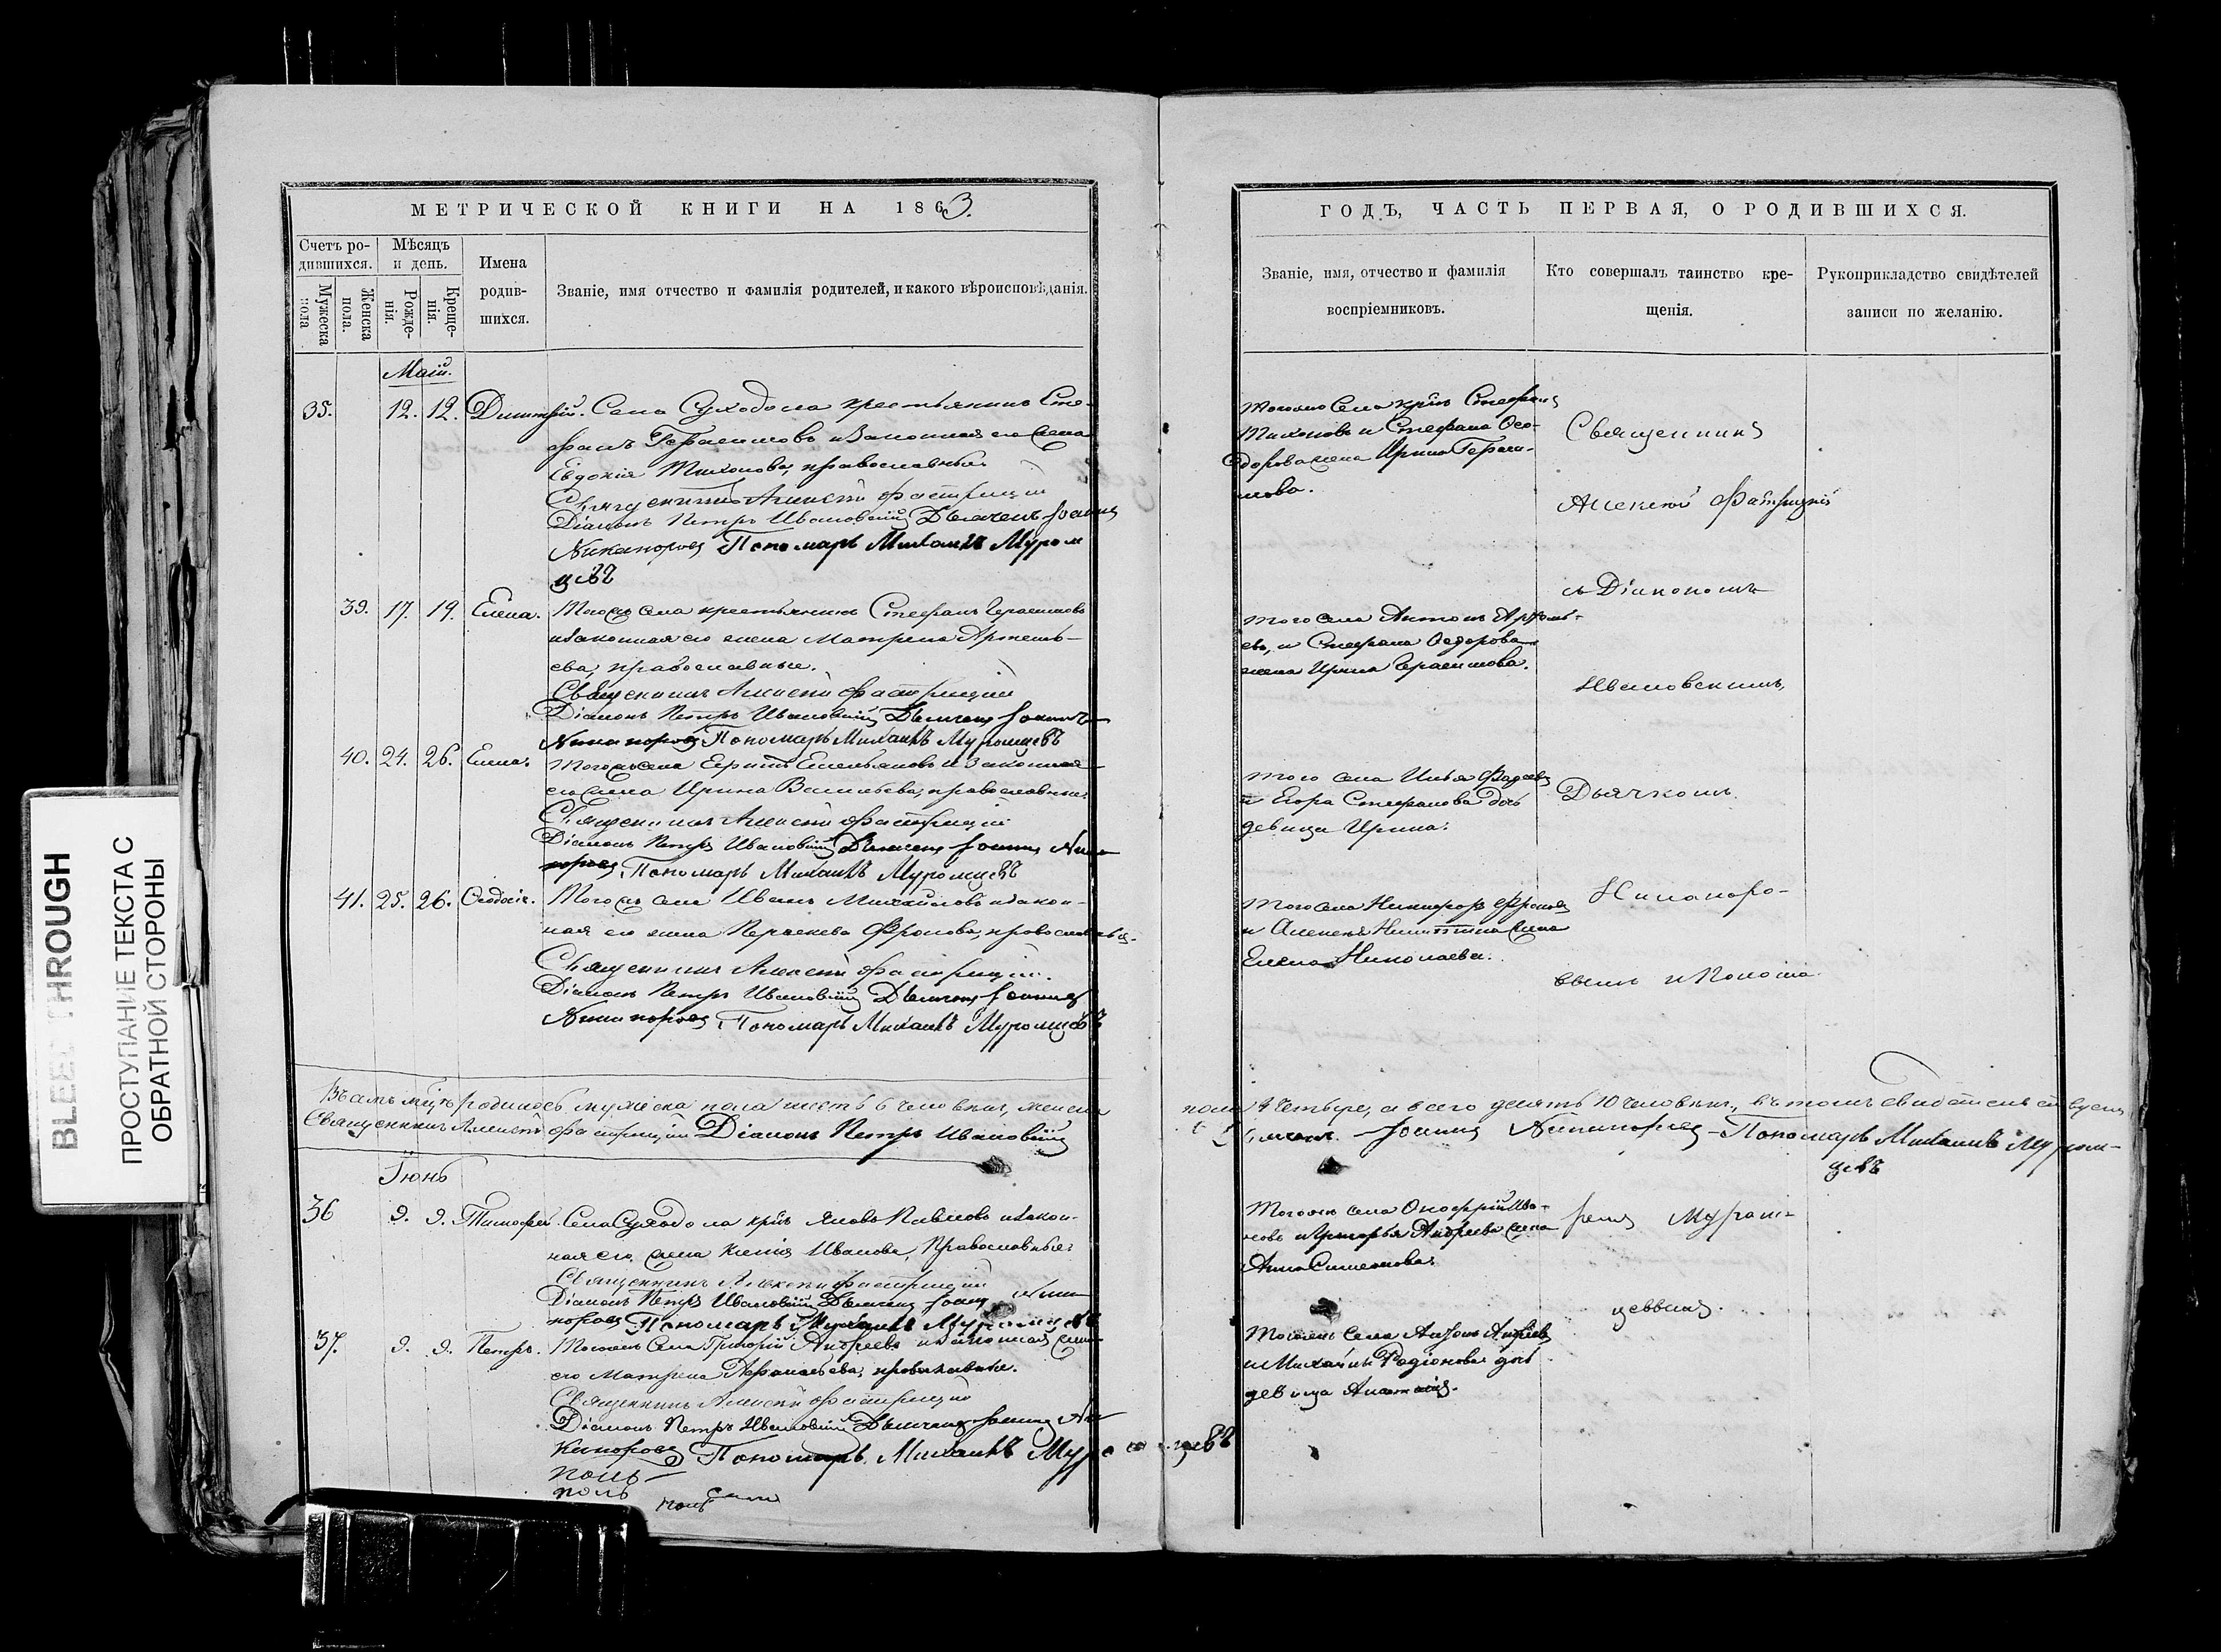 МЕТРИЧЕСКОЙ КНИГИ НА 1863.
Счетъ ро-
дившихся.
Мѣсяцъ
и день.
Имена
родив-
шихся.
Званіе, имя отчество и фамилія родителей, и какого вѣроисповѣданія.
Мужеска
пола
Женска
пола.
Рожде-
нія.
Креще-
нія.
Маій.
35. 12. 12. Димитрій. Села Суходола крестьянинъ Сте-
фанъ Герасимовъ и Законная его жена
Евдокія Тихонова, православные
Священникъ Алексѣй
Діаконъ Петръ Ивановскій Дьячекъ Іоаннъ
Никаноровъ Пономарь Михаилъ Муром
цевъ
39. 17. 19. Елена. Тогожъ села крестьянинъ Стефанъ Герасимовъ
и законная его жена Матрена Артемь-
ева, православные.
Священникъ Алексѣй
Діаконъ Петръ Ивановскій Дьячекъ Іоаннъ
Никаноровъ Пономарь Михаилъ Муромцевъ
40. 24. 26. Елена. Тогожъ села Емельяновъ и законная
его жена Ирина Васильева, православные.
Священникъ Алексѣй
Діаконъ Петръ Ивановскій Дьячекъ Іоаннъ Ника
норовъ Пономарь Михаилъ Муромцевъ
41. 25. 26. Ѳеодосія. Тогожъ села Иванъ Михайловъ и закон-
ная его жена Фролова, православныя.
Священникъ Алексѣй
Діаконъ Петръ Ивановскій Дьячекъ Іоаннъ
Никаноровъ Пономарь Михаилъ Муромцевъ
родилось мужеска пола шесть 6 человѣкъ, женска
Священникъ Алексѣй Діаконъ Петръ Ивановскій
Іюнь
36 9. 9. Тимофей. Села Суходола крнъ Яковъ Павловъ и закон-
ная его жена Ксенія Иванова, Православные.
Священникъ Алексѣй
Діаконъ Петръ Ивановскій Дьячекъ Іоаннъ Ника
норовъ Пономарь Михаилъ Муромцевъ
37. 9. 9. Петръ. Тогожъ Села Григорій Андреевъ и законная жена
его Матрена Афанасьева, православные.
Священникъ Алексѣй
Діаконъ Петръ Ивановскій Дьячекъ Іоаннъ Ни
каноровъ Пономарь Михаилъ Муромцевъ
ГОДЪ, ЧАСТЬ ПЕРВАЯ, О РОДИВШИХСЯ.
Званіе, имя, отчество и фамилія
воспріемниковъ.
Кто совершалъ таинство кре-
щенія.
Рукоприкладство свидѣтелей
записи по желанію.
Тогожъ Села крнъ Стефанъ
Тихоновъ и Стефана Ѳео-
дорова жена Ирина Гераси-
мова.
того села Антонъ Артемь-
евъ, и Стефана Ѳедорова
жена Ирина Герасимова.
того села Илья Фадеевъ
и Егора Стефанова дочь
девица Ирина.
Того села Никифоръ Фроловъ
и Алексея Никитина жена
Елена Николаева.
Священникъ
Алексей
съ Діакономъ
Ивановскимъ,
Дьячкомъ
Никаноро-
вымъ и Понома
пола 4 четыре, а всего десять 10 человѣкъ, въ томъ свидѣтельствуемъ
Дьячекъ Іоаннъ Никаноровъ Пономарь Михаилъ Муром-
цевъ
Тогожъ села Онофрій Ива-
новъ и Григорья Андреева жена
Анна Симеонова.
ремъ Муром-
цевымъ.
Тогожъ Села Антонъ Андреевъ
и Михаила Родіонова дочь
девица Анастасія.
BLEED THROUGH
ПРОСТУПАНИЕ ТЕКСТА С
ОБРАТНОЙ СТОРОНЫ